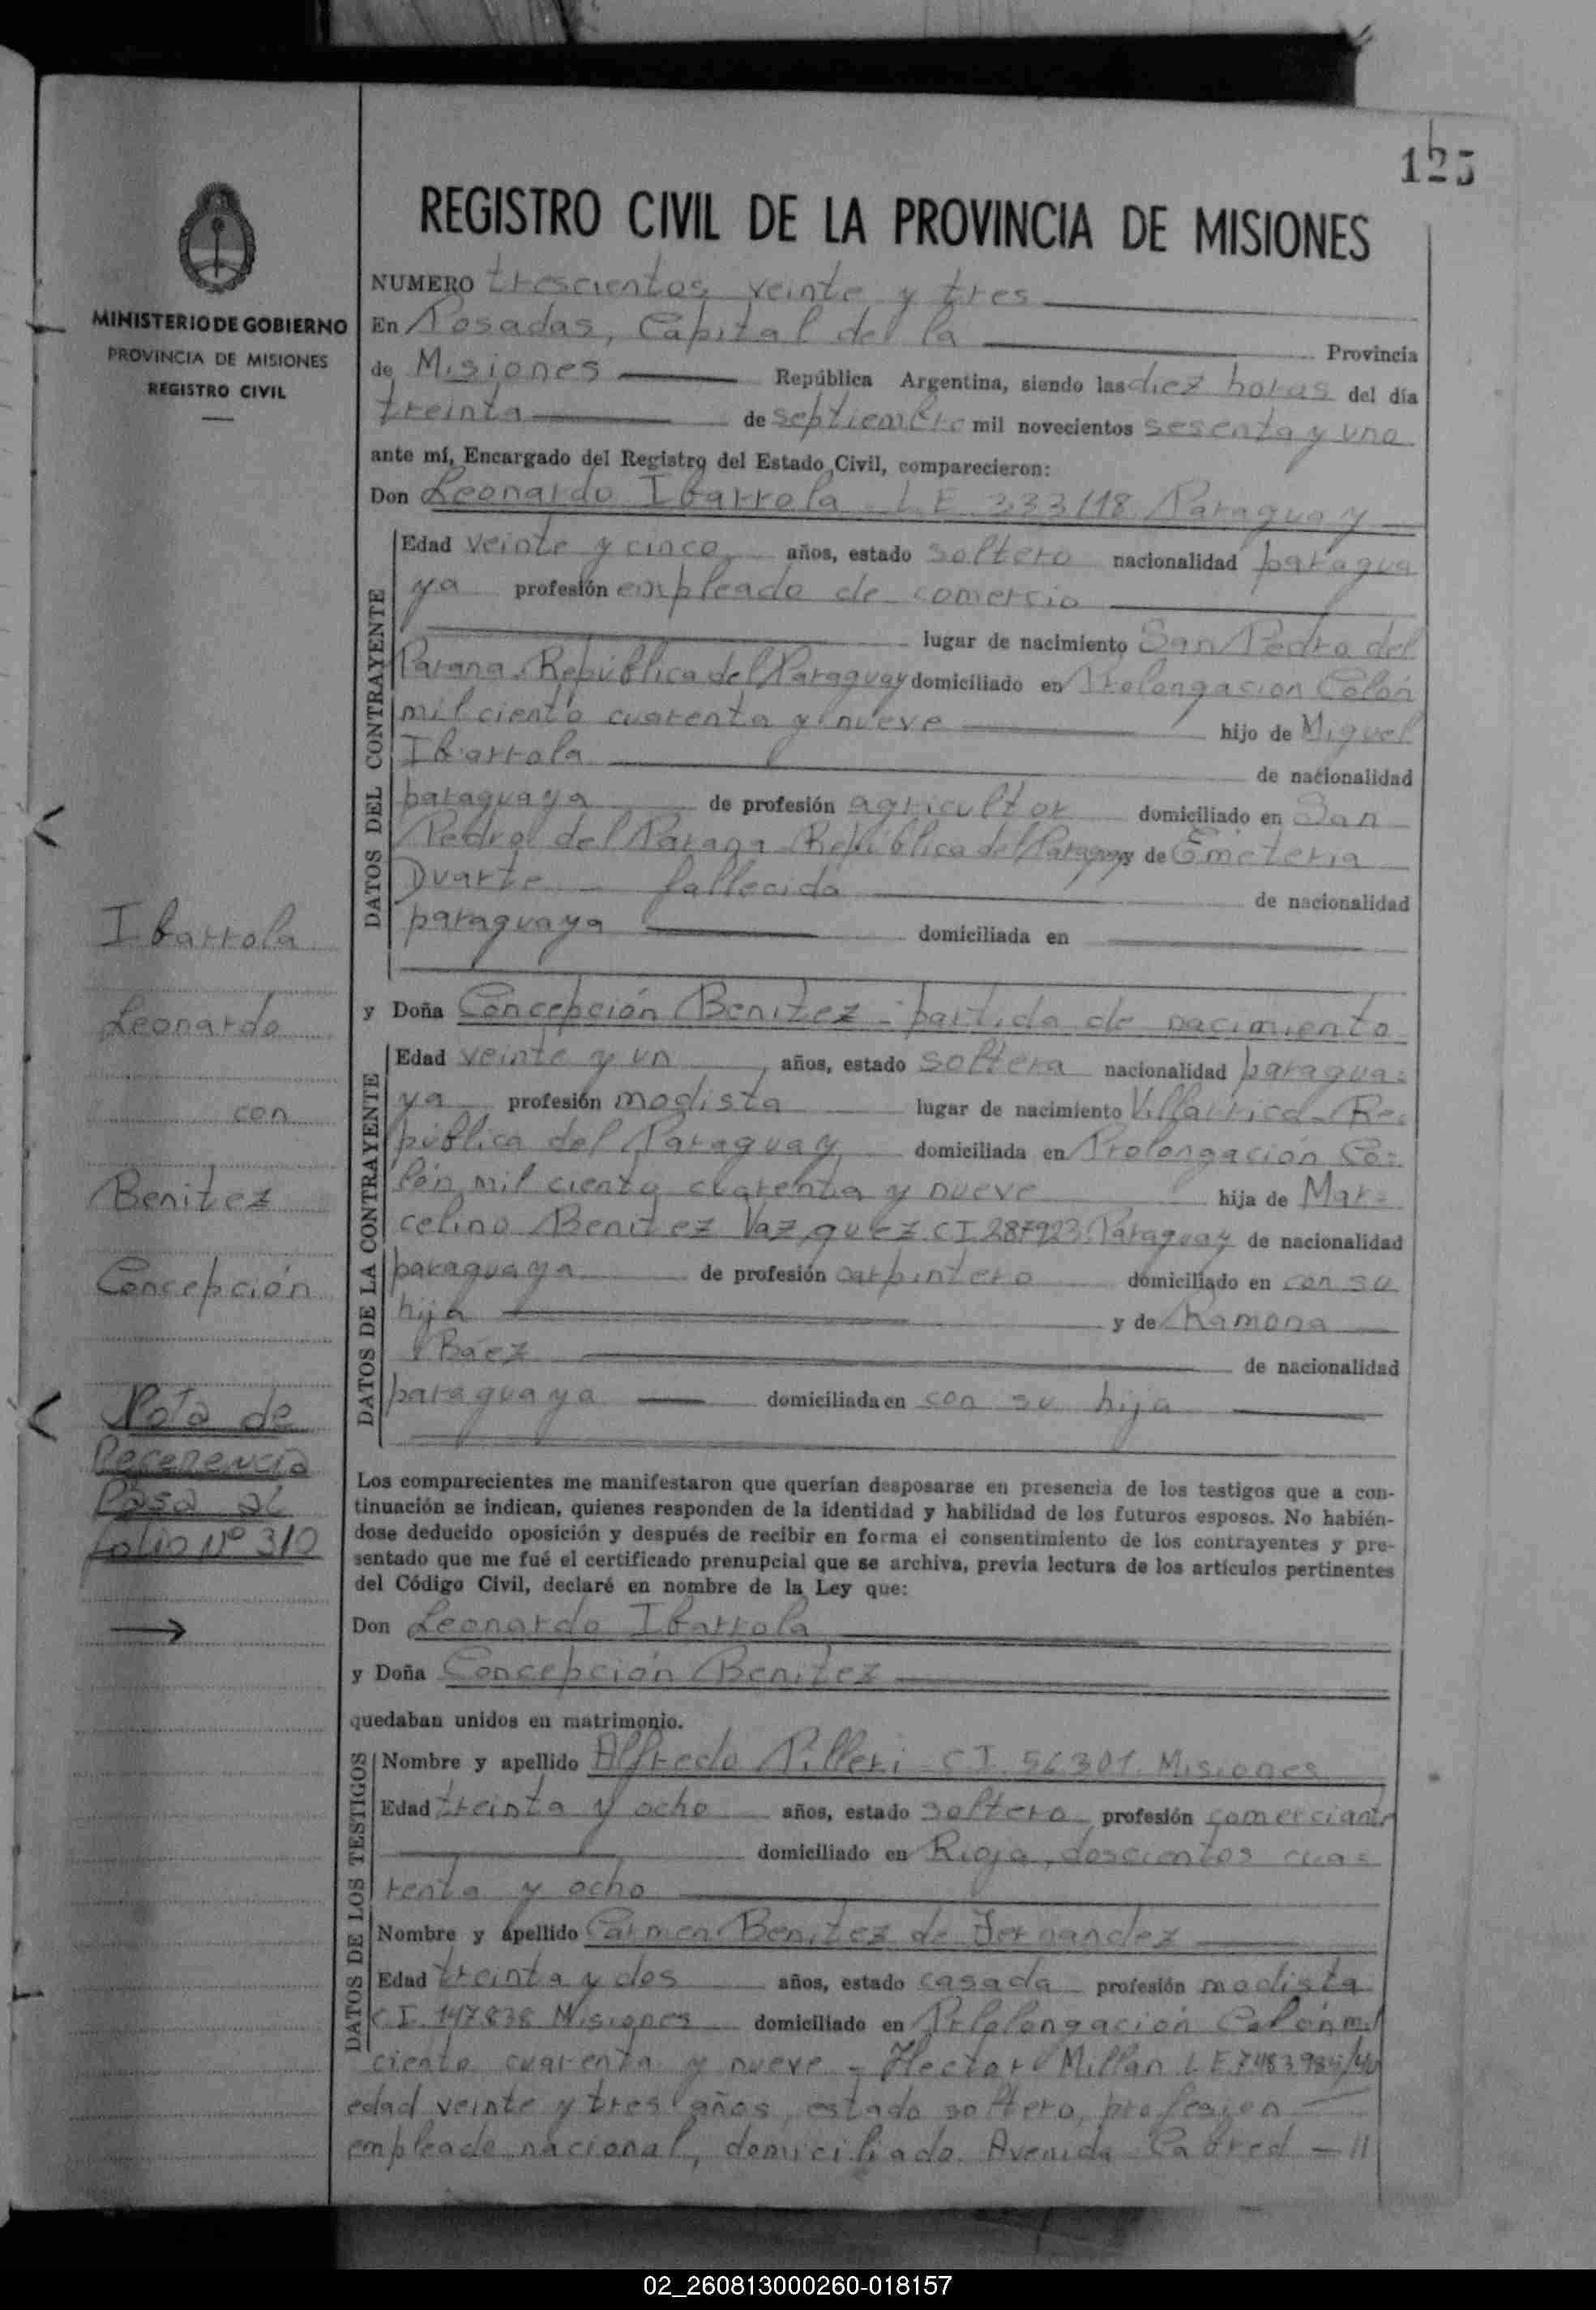 125
REGISTRO CIVIL DE LA PROVINCIA DE MISIONES
MINISTERIO DE GOBIERNO
PROVINCIA DE MISIONES
REGISTRO CIVIL
NUMERO trescientos veinte y tres
En Posadas, Capital del la Provincia
de Misiones República Argentina, siendo las diez horas del día
treinta de septiembre mil novecientos sesenta y uno
ante mí, Encargado del Registro del Estado Civil, comparecieron:
Don Leonardo Ibarrola - L E 333118 Paraguay
DATOS DEL CONTRAYENTE
Edad veinte y cinco años, estado soltero nacionalidad paragua
ya profesión empleado de comercio
lugar de nacimiento San Pedro del
Parana - República del Paraguay domiciliado en Prolongacion Colón
mil ciento cuarenta y nueve hijo de Miguel
Ibarrola de nacionalidad
paraguaya de profesión agricultor domiciliado en San
Pedro del Parana República del Paraguay y de Emeteria
Duarte - fallecida de nacionalidad
paraguaya domiciliada en
y Doña Concepción Benitez - partida de nacimiento
DATOS DE LA CONTRAYENTE
Edad veinte y un años, estado soltera nacionalidad paragua=
ya profesión modista lugar de nacimiento Villarrica - Re=
pública del Paraguay domiciliada en Prolongación Co=
lón mil ciento cuarenta y nueve hija de Mar=
celino Benitez Vazquez C I 287923 Paraguay de nacionalidad
paraguaya de profesión carpintero domiciliado en con su
hija y de Ramona
Báez de nacionalidad
paraguaya domiciliada en con su hija
Ibarrola
Leonardo
con
Benitez
Concepción
Nota de
Referencia
Pasa al
folio Nº 310
Los comparecientes me manifestaron que querían desposarse en presencia de los testigos que a con-
tinuación se indican, quienes responden de la identidad y habilidad de los futuros esposos. No habién-
dose deducido oposición y después de recibir en forma el consentimiento de los contrayentes y pre-
sentado que me fué el certificado prenupcial que se archiva, previa lectura de los artículos pertinentes
del Código Civil, declaré en nombre de la Ley que:
Don Leonardo Ibarrola
y Doña Concepción Benitez
quedaban unidos en matrimonio.
DATOS DE LOS TESTIGOS
Nombre y apellido Alfredo Pilleri - C I. 56301. Misiones
Edad treinta y ocho años, estado soltero profesión comerciante
domiciliado en Rioja, doscientos cua=
renta y ocho
Nombre y apellido Carmen Benitez de Fernandez
Edad treinta y dos años, estado casada profesión modista
C I. 147.838 Misiones domiciliado en Prolongación Colón mil
ciento cuarenta y nueve - Hector Millan L E 7483985/40
edad veinte y tres años, estado soltero, profesion
empleado nacional, domiciliado Avenida Cabred - 11
02_260813000260-018157